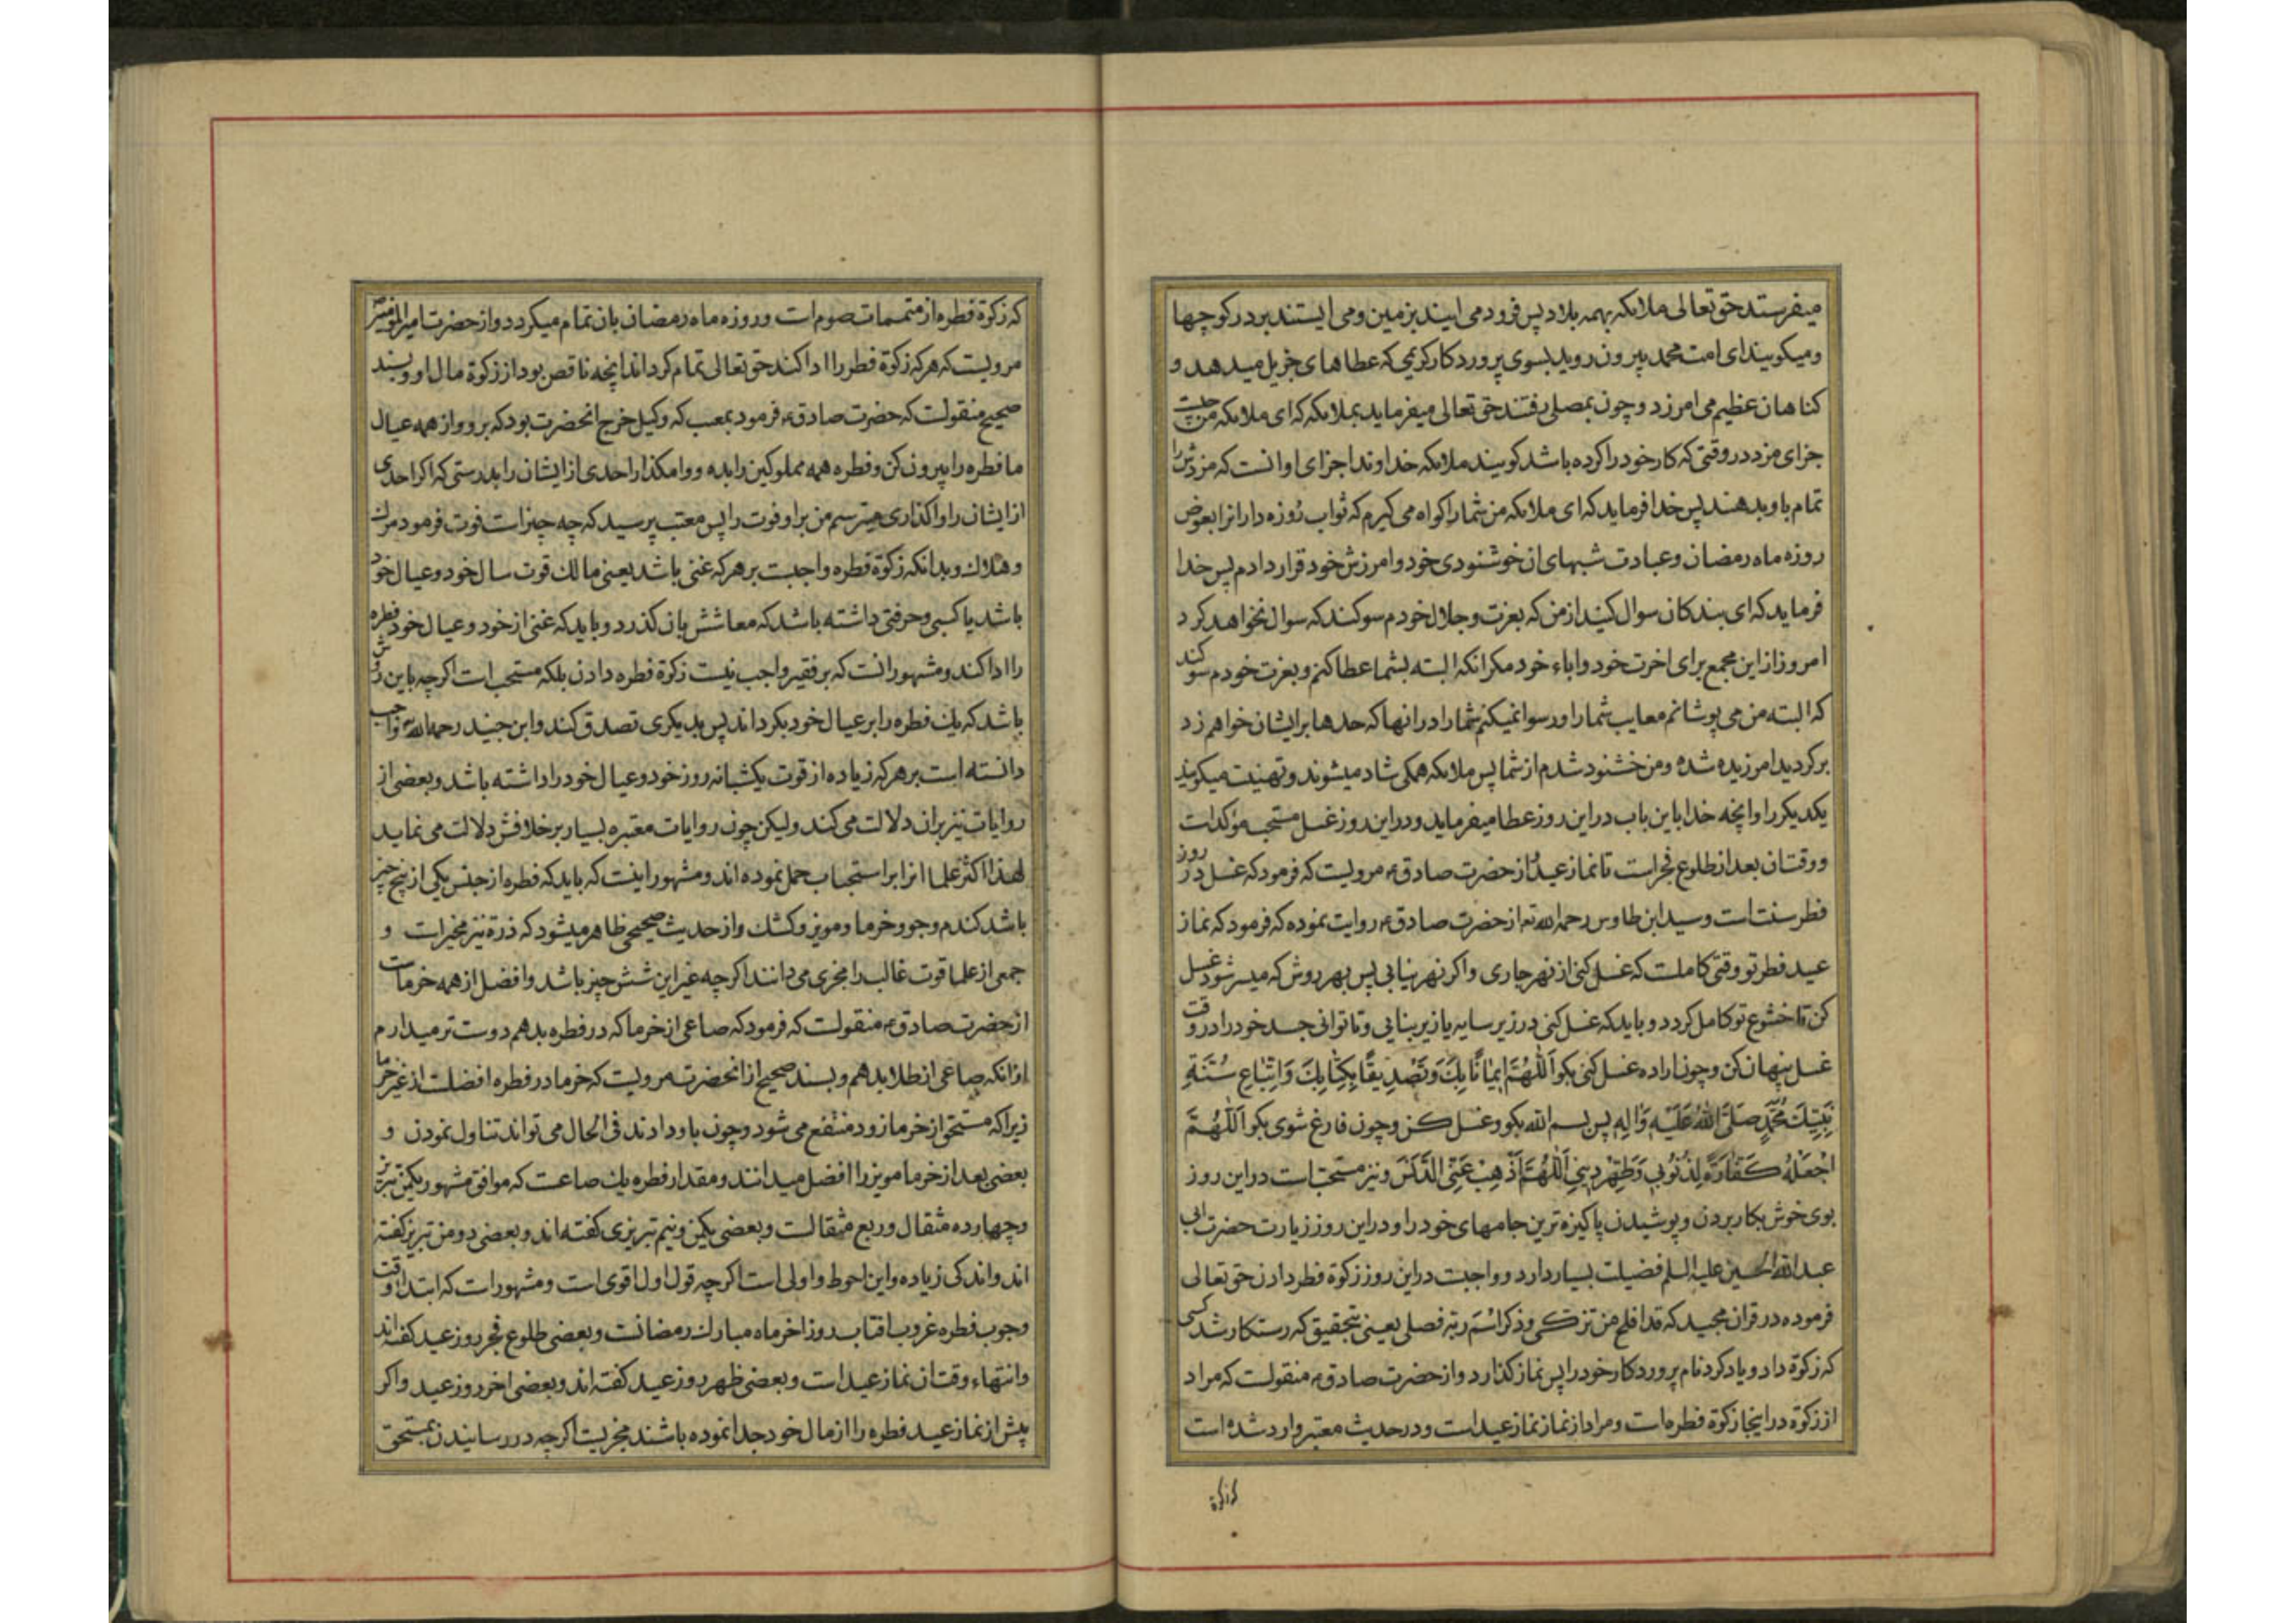 میفرستد حق تعالی ملائکه بهمه بلاد پس فرود می ایند بزمین و می ایستند بر در کوچها
و میکویند ای امت محمد بیرون روید بسوی پروردکار کریمی که عطاهای جزیل میدهد و
کناهان عظیم می امرزد و چون بمصلی رفتند حق تعالی میفرماید بملائکه که ای ملائکه من چیست
جزای مزد در وقتی که کار خود را کرده باشد کویند ملائکه خداوندا جزای او انست که مزدش را
تمام باو بدهند پس خدا فرماید که ای ملائکه من شما را کواه می کیرم که ثواب روزه داران را بعوض
روزه ماه رمضان و عبادت شبهای ان خوشنودی خود و امرزش خود قرار دادم پس خدا
فرماید که ای بندکان سوال کنید از من که بعزت و جلال خودم سوکند که سوال نخواهد کرد
امروز از این مجمع برای اخرت خود و اباء خود مکر انکه البته بشما عطا کنم و بعزت خودم سوکند
که البته من می پوشانم معایب شما را و رسوا نمیکنم شما را در انها که حدها بر ایشان خواهم زد
برکردید امرزیده شده و من خشنود شدم از شما پس ملائکه همکی شاد میشوند و تهنیت میکویند
یکدیکر را و انچه خدا باین باب در این روز عطا میفرماید و در این روز غسل مستحب موکدات
و وقت ان بعد از طلوع فجر است تا نماز عید و از حضرت صادق ع مرویست که فرمود که غسل در روز
فطر سنت است و سید ابن طاوس رحمه الله ته از حضرت صادق ع روایت نموده که فرمود که نماز
عید فطر تو وقتی کاملست که غسل کنی از نهر جاری و اکر نهر نیابی پس بهر روش که میسر شود غسل
کن تا خشوع تو کامل کردد و باید که غسل کنی در زیر سایه یا زیر بنایی و تا توانی جسد خود را در وقت
غسل پنهان کن و چون اراده غسل کنی بکو اَللّهُمَّ ایمانًا بِكَ وَتَصْدیقًا بِكِتابِكَ وَاتِّباعِ سُنَّةِ
نَبِیِّكَ مُحَمَّدٍ صَلَّی اللهُ عَلَیْهِ وَالِهِ پس بسم الله بکو و غسل کن و چون فارغ شوی بکو اَللّهُمَّ
اجْعَلْهُ كَفّارَةً لِذُنُوبی وَطَهِّرْ دینی اَللّهُمَّ اَذْهِبْ عَنِّی الدَّنَسَ و نیز مستحبات در این روز
بوی خوش بکار بردن و پوشیدن پاکیزه ترین جامهای خود را و در این روز زیارت حضرت ابی
عبد الله الحسین علیه السلم فضیلت بسیار دارد و واجبت در این روز زکوة فطر دادن حق تعالی
فرموده در قران مجید که قد افلح من تزکی و ذکر اسم ربه فصلی یعنی بتحقیق که رستکار شد کسی
که زکوة داد و یاد کرد نام پروردکار خود را پس نماز کذارد و از حضرت صادق ع منقولست که مراد
از زکوة در اینجا زکوة فطره است و مراد از نماز نماز عید است و در حدیث معتبر وارد شده است
که زکوة
که زکوة فطره از متممات صوم است و روزه ماه رمضان بان تمام میکردد و از حضرت امیر المؤمنین
مرویست که هر که زکوة فطر را ادا کند حق تعالی تمام کرداند انچه ناقص بود از زکوة مال او و بسند
صحیح منقولست که حضرت صادق ع فرمود بمعتب که وکیل خرج انحضرت بود که برو و از همه عیال
ما فطره را بیرون کن و فطره همه مملوکین را بده و وامکذار احدی از ایشان را بدرستی که اکر احدی
از ایشان را واکذاری میترسم من بر او فوت را پس معتب پرسید که چه چیز است فوت فرمود مرک
و هلاک و بدانکه زکوة فطره واجبت بر هر که غنی باشد یعنی مالک قوت سال خود و عیال خود
باشد یا کسبی و حرفتی داشته باشد که معاشش بان کذرد و باید که غنی از خود و عیال خود فطره
را ادا کند و مشهور انست که بر فقیر واجب نیست زکوة فطره دادن بلکه مستحب است اکرچه باین روش
باشد که یک فطره را بر عیال خود بکرداند پس بدیکری تصدق کند و ابن جنید رحمه الله واجب
دانسته است بر هر که زیاده از قوت یکشبانه روز خود و عیال خود را داشته باشد و بعضی از
روایات نیز بران دلالت می کند ولیکن چون روایات معتبره بسیار بر خلافش دلالت می نماید
لهذا اکثر علما انرا بر استحباب حمل نموده اند و مشهور اینست که باید که فطره از جنس یکی از پنج چیز
باشد کندم و جو و خرما و مویز و کشک و از حدیث صحیحی ظاهر میشود که ذرة نیز مجزیست و
جمعی از علما قوت غالب را مجزی می دانند اکرچه غیر این شش چیز باشد و افضل از همه خرماست
از حضرت صادق ع منقولست که فرمود که صاعی از خرما که در فطره بدهم دوست تر میدارم
از انکه صاعی از طلا بدهم و بسند صحیح از انحضرت مرویست که خرما در فطره افضلست از غیر خرما
زیرا که مستحق از خرما زود منتفع می شود و چون باو دادند فی الحال می تواند تناول نمودن و
بعضی بعد از خرما مویز را افضل میدانند و مقدار فطره یک صاعست که موافق مشهور یکمن تبریز
و چهارده مثقال و ربع مثقالست و بعضی یکمن و نیم تبریزی کفته اند و بعضی دو من تبریز کفته
اند و اندکی زیاده و این احوط و اولی است اکرچه قول اول اقوی است و مشهور است که ابتداء وقت
وجوب فطره غروب افتاب روز اخر ماه مبارک رمضانست و بعضی طلوع فجر روز عید کفته اند
و انتهاء وقت ان نماز عید است و بعضی ظهر روز عید کفته اند و بعضی اخر روز عید و اکر
پیش از نماز عید فطره را از مال خود جدا نموده باشند مجزیست اکرچه در رسانیدن بمستحق